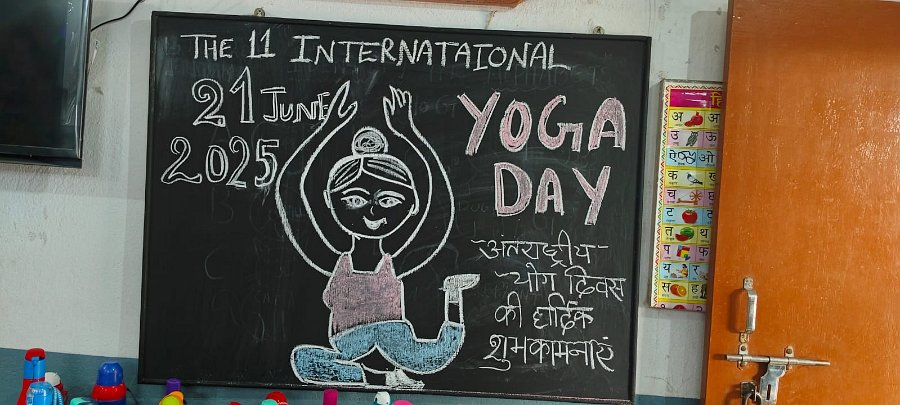 THE 11 INTERNATAIONAL
21 JUNE
2025
YOGA
DAY
अंतराष्ट्रीय
योग दिवस
की हार्दिक
शुभकामनाएं
अ
उ ऊ
ऐ ओ
क ख
च छ
ट
त थ
प फ
य र
स ह